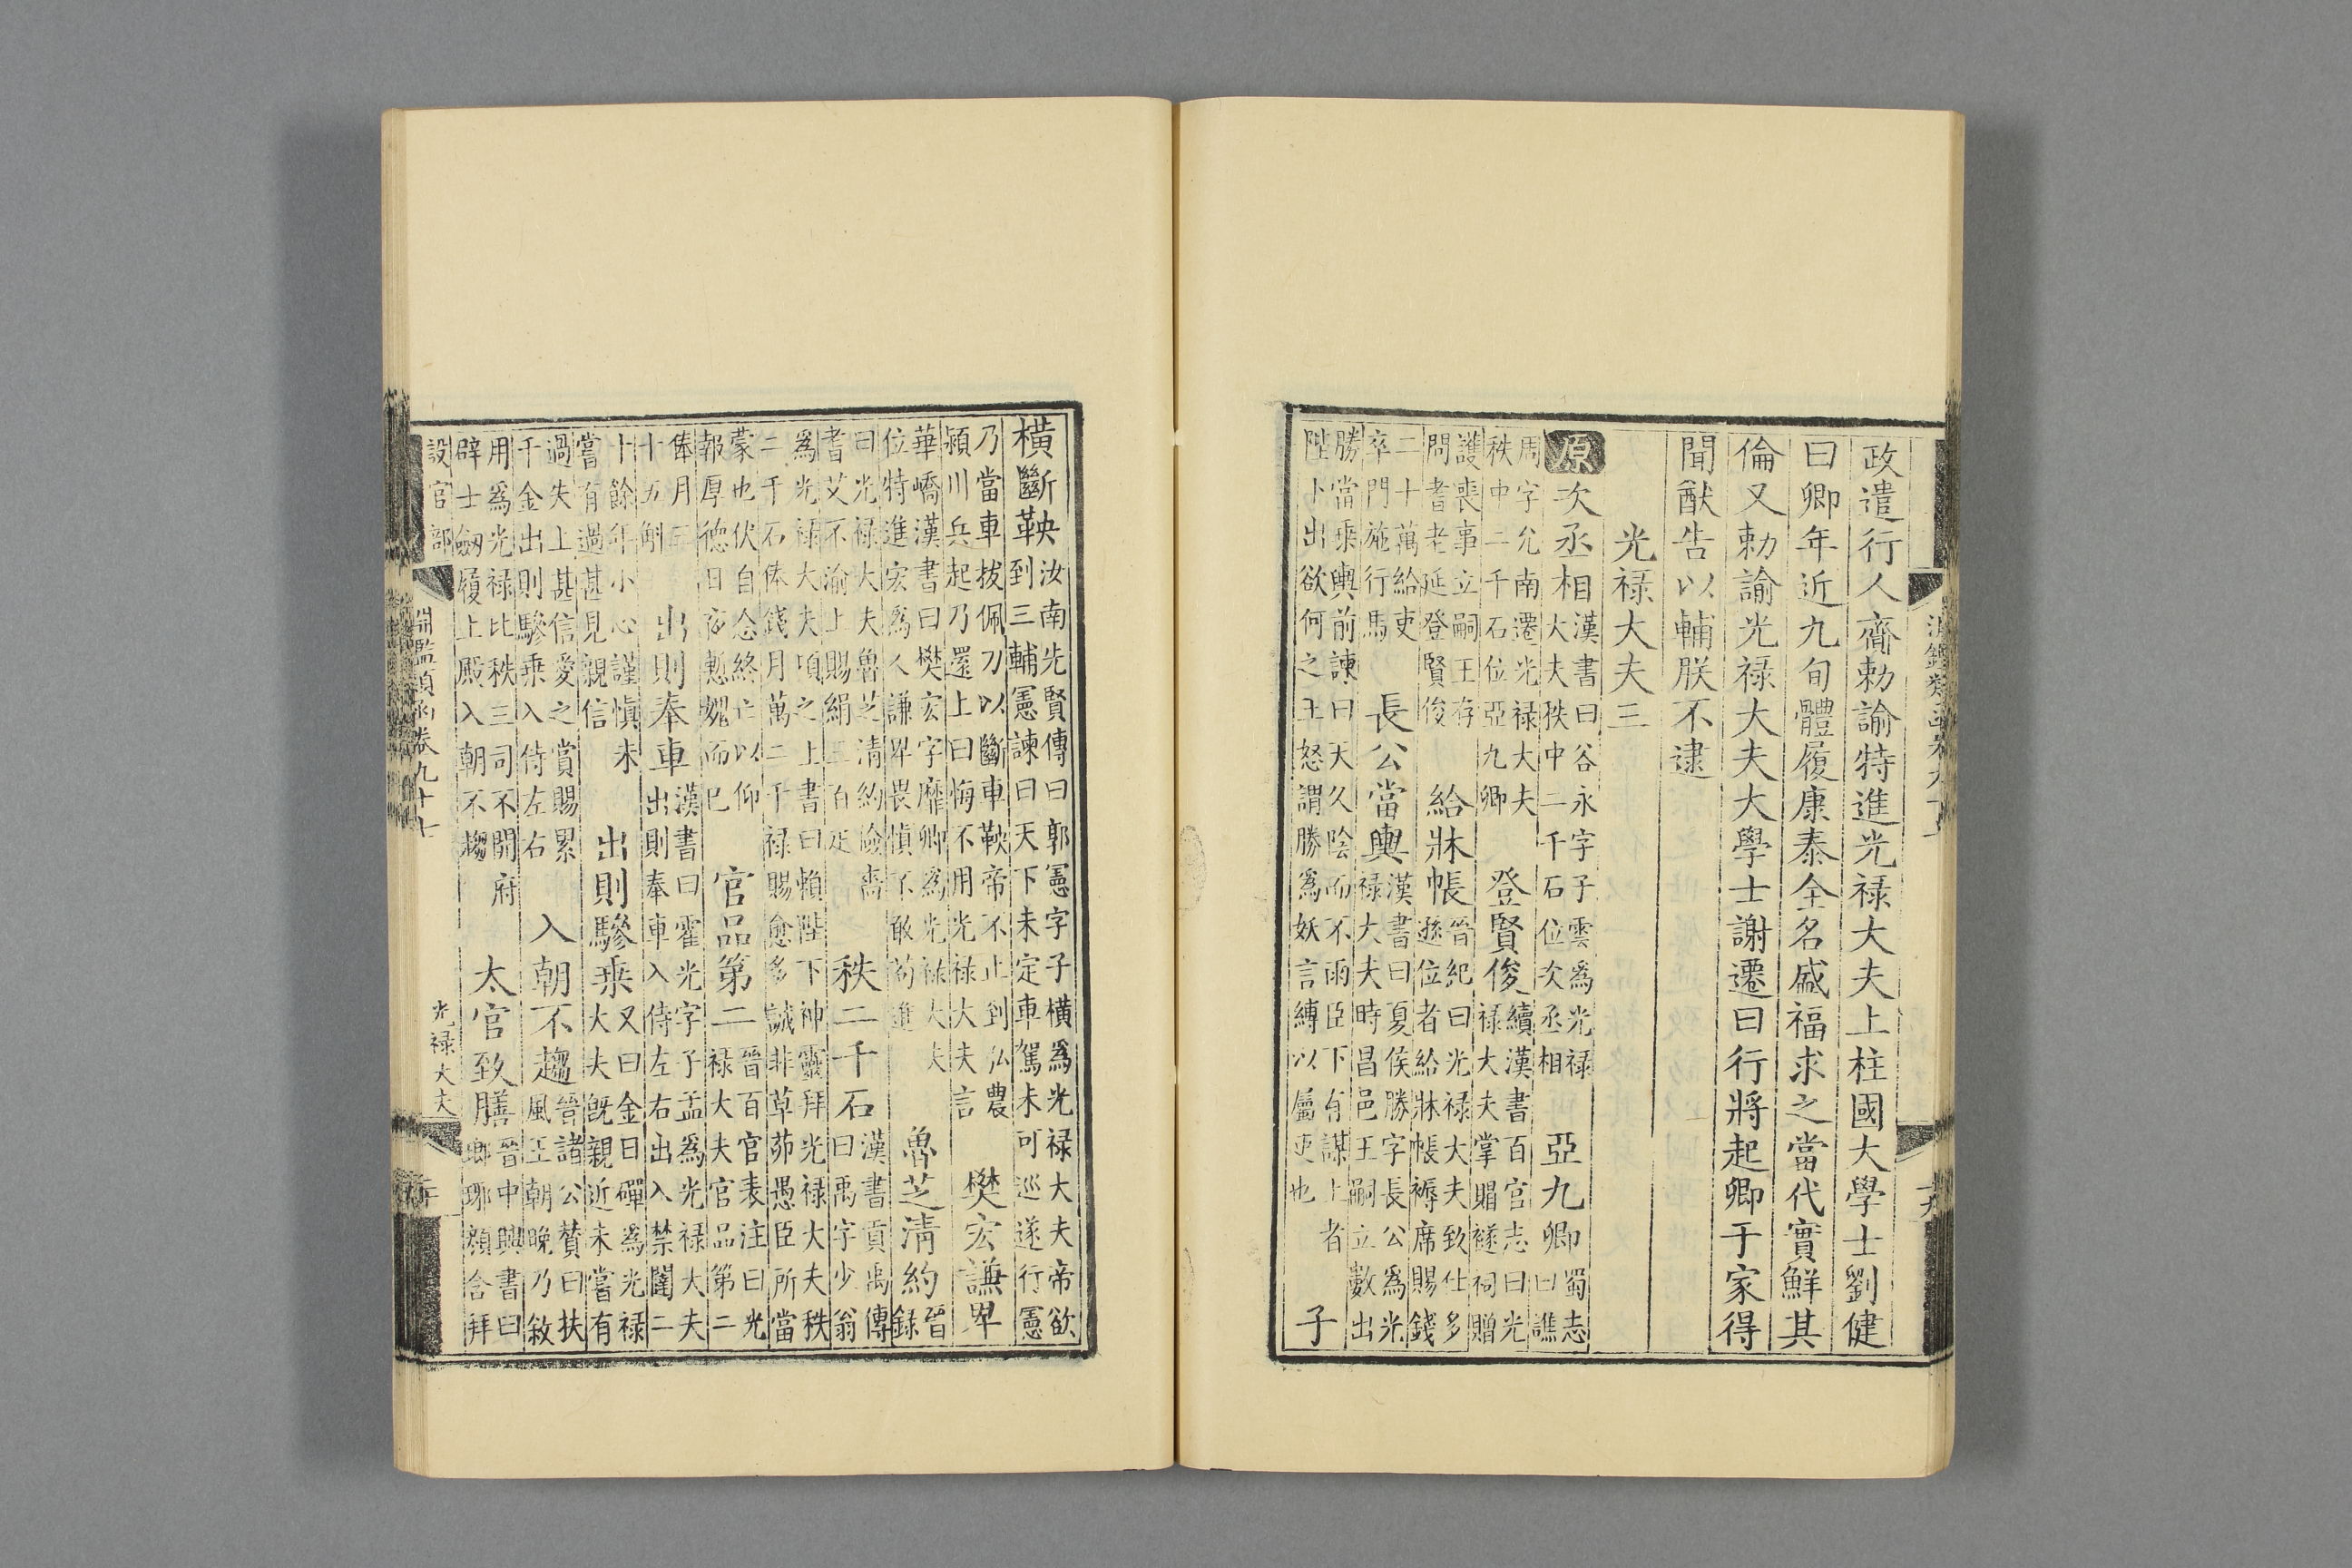 政遣行人齎勅諭特進光禄大夫上柱國大學士劉健
曰卿年近九旬體履康泰全名盛福求之當代實鮮其
倫又勅諭光禄大夫大學士謝遷曰行將起卿于家得
聞猷告以輔朕不逮
光禄大夫三
原 次丞相 漢書曰谷永字子雲爲光禄
大夫秩中二千石位次丞相 亞九卿 蜀志
曰譙
周字允南遷光禄大夫
秩中二千石位亞九卿 登賢俊 續漢書百官志曰光
禄大夫掌賵襚祠贈
護喪事立嗣王存
問耆老延登賢俊 給牀帳 晉紀曰光禄大夫致仕多
遜位者給牀帳褥席賜錢
二十萬給吏
卒門施行馬 長公當輿 漢書曰夏侯勝字長公爲光
禄大夫時昌邑王嗣立數出
勝當乗輿前諫曰天久陰而不雨臣下有謀上者
陛下出欲何之王怒謂勝爲妖言縛以屬吏也 子
橫斷鞅 汝南先賢傳曰郭憲字子橫爲光禄大夫帝欲
到三輔憲諫曰天下未定車駕未可巡遂行憲
乃當車拔佩刀以斷車鞅帝不止到弘農
潁川兵起乃還上曰悔不用光禄大夫言 樊宏謙卑
華嶠漢書曰樊宏字靡卿爲光禄大夫
位特進宏爲人謙卑畏愼不敢茍進 魯芝淸約 晉
録
曰光禄大夫魯芝淸約儉嗇
耆艾不渝上賜絹三百疋 秩二千石 漢書貢禹傳
曰禹字少翁
爲光禄大夫頃之上書曰賴陛下神靈拜光禄大夫秩
二千石俸錢月萬二千禄賜愈多誠非草茆愚臣所當
蒙也伏自念終亡以仰
報厚德日夜慙媿而已 官品第二 晉百官表注曰光
禄大夫官品第二
俸月三
十五斛 出則奉車 漢書曰霍光字子孟爲光禄大夫
出則奉車入侍左右出入禁闥二
十餘年小心謹愼未
嘗有過甚見親信 出則驂乗 又曰金日磾爲光禄
大夫旣親近未嘗有
過失上甚信愛之賞賜累
千金出則驂乗入侍左右 入朝不趨 晉諸公贊曰扶
風王朝晚乃敘
用爲光禄比秩三司不開府
辟士劒履上殿入朝不趨 太官致膳 晉中興書曰
瑯琊顔含拜
設官部
淵鑑類函卷九十七
光禄大夫